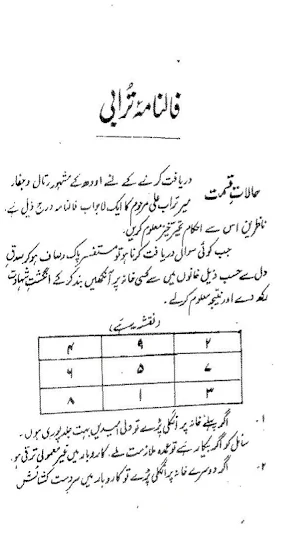 فالنامۂ ترابی
حالات قسمت دریافت کرنے کے لئے اودھ کے مشہور رتال و جفار
میر تراب علی مرحوم کا ایک لاجواب فالنامہ درج ذیل ہے،
ناظرین اس سے احکام تحیر خیز معلوم کریں۔
جب کوئی سوال دریافت کرنا ہو تو مستفسر پاک و صاف ہو کر بصدق
دل سے حسب ذیل خانوں میں سے کسی خانہ پر آنکھیں بند کر کے انگشت شہادت
رکھ دے اور نتیجہ معلوم کرلے۔
(نقشہ یہ ہے)
۴ ۹ ۲
۶ ۵ ۷
۸ ۱ ۳
۱۔ اگر پہلے خانہ پر انگلی پڑے تو دلی امیدیں بہت جلد پوری ہوں۔
سائل کو اگر بیکار ہے تو عمدہ ملازمت ملے، کاروبار میں غیر معمولی ترقی ہو۔
۲۔ اگر دوسرے خانہ پر انگلی پڑے تو کاروبار میں سردست کشائش